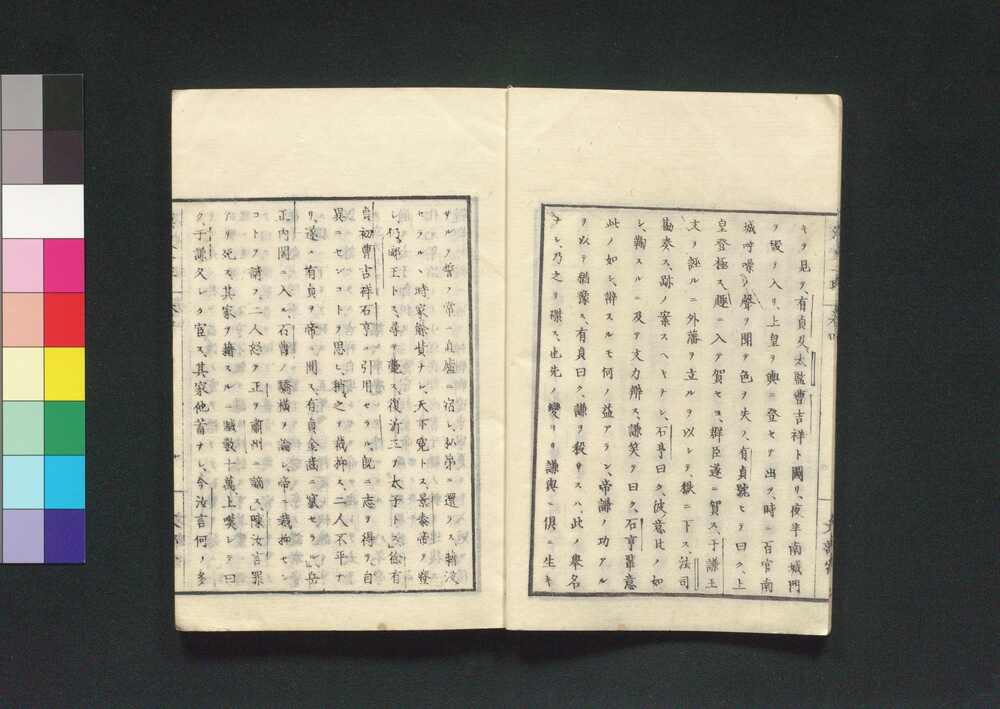 キヲ見テ、有貞又太監曹吉祥ト圖リ、夜半南城門
ヲ毀リ入リ、上皇ヲ輿ニ登セテ出ツ、時ニ百官南
城呼噪ノ聲ヲ聞テ色ヲ失フ、有貞號セテ曰ク、上
皇登極ス、趣ニ入テ賀セヨ、群臣遂ニ賀ス、于謙王
文ヲ誣ルニ外藩ヲ立ルヲ以レテ、獄ニ下ス、法司
勘奏ス、跡ノ案スヘキナレ、石亨曰ク、彼意此ノ如
レ、鞠スルニ及テ文力辨ス、謙笑テ曰ク、石亨輩意
此ノ如レ、辨スルモ何ノ益アラン、帝謙ノ功アル
ヲ以テ猶豫ス、有貞曰ク、謙ヲ殺サスハ、此ノ舉名
ナレ、乃之ヲ磔ス、也先ノ變ヨリ謙與ニ俱ニ生キ
サルヲ誓フ、常ニ直廬ニ宿レ、私第ニ還ラス、籍没
セラルヽ時家餘貲ナレ、天下冤トス、景泰帝ヲ廢
レ、郕王トス、尋テ薨ス、復沂王ヲ太子トス、徐有
貞初曹吉祥石亨ニ引用セラル、既ニ志ヲ得テ自
異ニセンコトヲ思レ、稍之ヲ裁抑ス、二人不平ナ
リ、遂ニ有貞ヲ帝ニ間ス、有貞金齒ニ竄セラル、岳
正内閣ニ入ル、石曹ノ驕横ヲ論レ、帝ニ裁抑セン
コトヲ請フ、二人怒テ正ヲ肅州ニ謫ス、陳汝言罪
アリ死ス、其家ヲ籍スルニ贓數十萬、上嘆レテ曰
ク、于謙久レク宦ス、其家他蓄ナレ、今汝言何ノ多